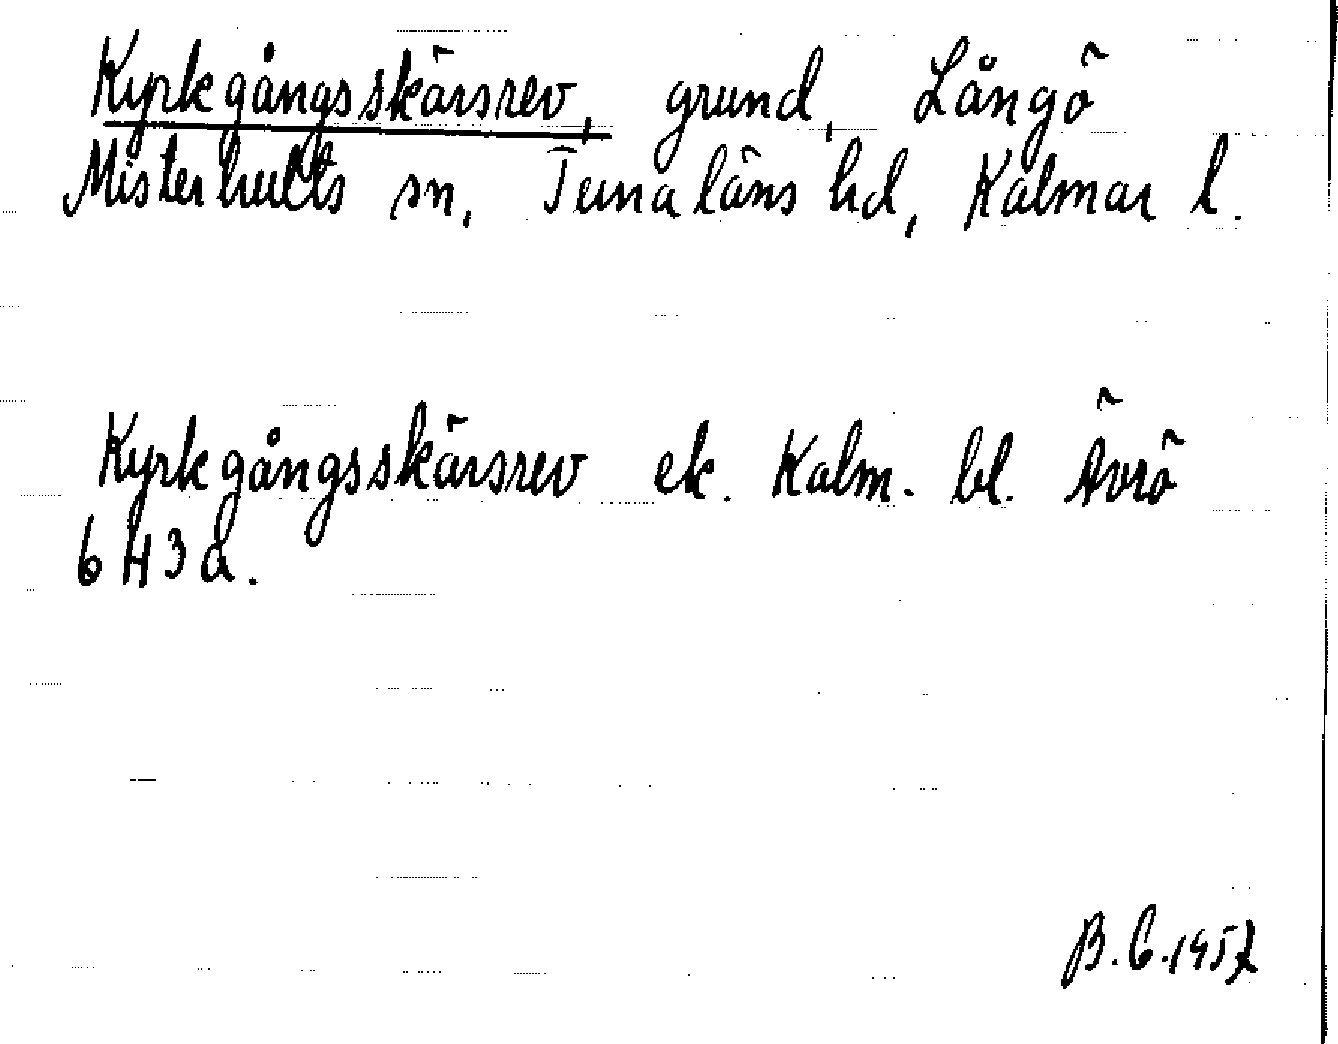 Kyrkgångsskärsrev, grund, Långö
Misterhults sn, Tunaläns hd, Kalmar l.
Kyrkgångsskärsrev ek. Kalm. bl. Ävrö
6 H 3 a.
B.G. 1957